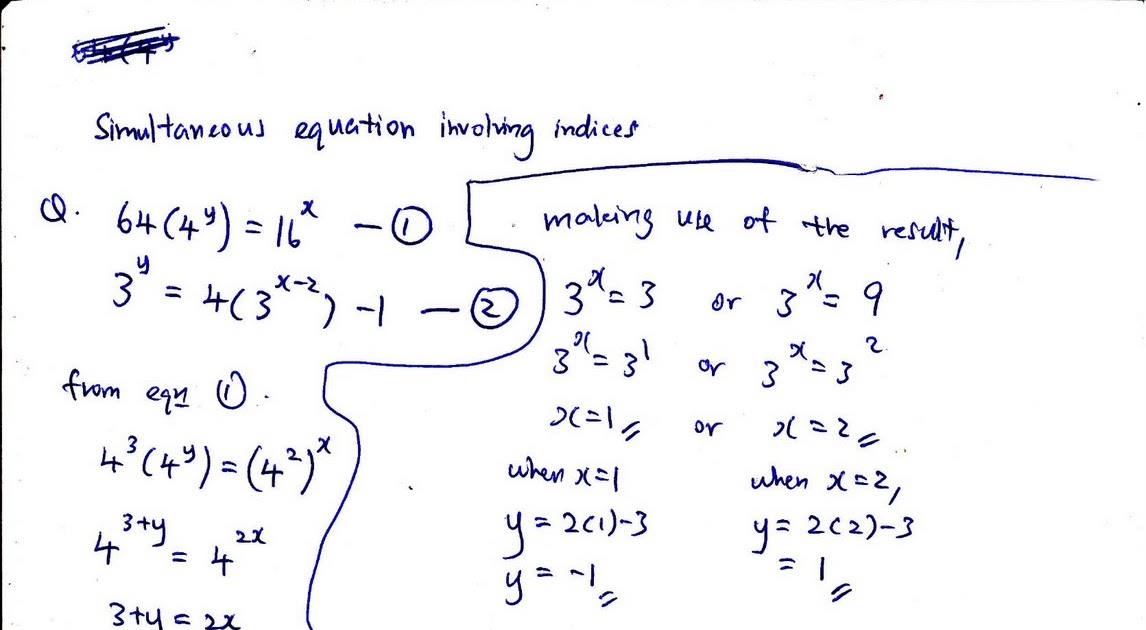 Simultaneous equation involving indices
Q. 64(4^y) = 16^x — ①
3^y = 4(3^{x-2}) -1 — ②
from eqn ①.
4^3(4^y) = (4^2)^x
4^{3+y} = 4^{2x}
3+y = 2x
making use of the result,
3^x = 3 or 3^x = 9
3^x = 3^1 or 3^x = 3^2
x=1 or x = 2
when x=1 when x=2,
y = 2(1)-3 y = 2(2)-3
y = -1 = 1